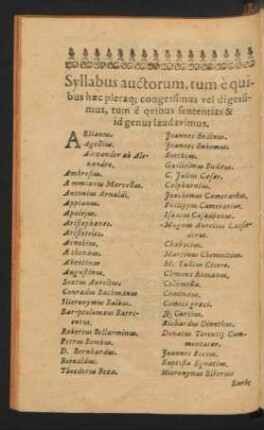 Syllabus auctorum, tum è qui-
bus hæc pleraq; congessimus vel digessi-
mus, tum è qvibus sententias &
id genus laudavimus.
AElianus.
Agellius.
Alexander ab Ale-
xandro.
Ambrosius.
Ammianus Marcellus.
Antonius Arnaldi.
Appianus.
Apulejus.
Aristophanes.
Aristoteles.
Arnobius.
Athenæus.
Aventinus
Augustinus.
Sextus Aurelius.
Conradus Bachmanus
Hieronymus Balbus.
Bartolomæus Barri-
entus.
Robertus Bellarminus.
Petrus Bembus.
D. Bernhardus.
Beroaldus.
Theodorus Beza.
Joannes Bodinus.
Joannes Bohemus.
Boethius.
Guilielmus Budæus.
C. Julius Cæsar.
Calphurnius.
Joachimus Camerarius.
Philippus Camerarius.
Isaacus Casaubonus.
Magnus Aurelius Cassio-
dorus.
Chabotius.
Martinus Chemnitius.
M. Tullius Cicero.
Clemens Romanus.
Columella.
Cominæus.
Comici græci.
Q. Curtius.
Richardus Dinothus.
Donatus Terentij Com-
mentator.
Joannes Eccius.
Baptista Egnatius.
Hieronymus Elverus